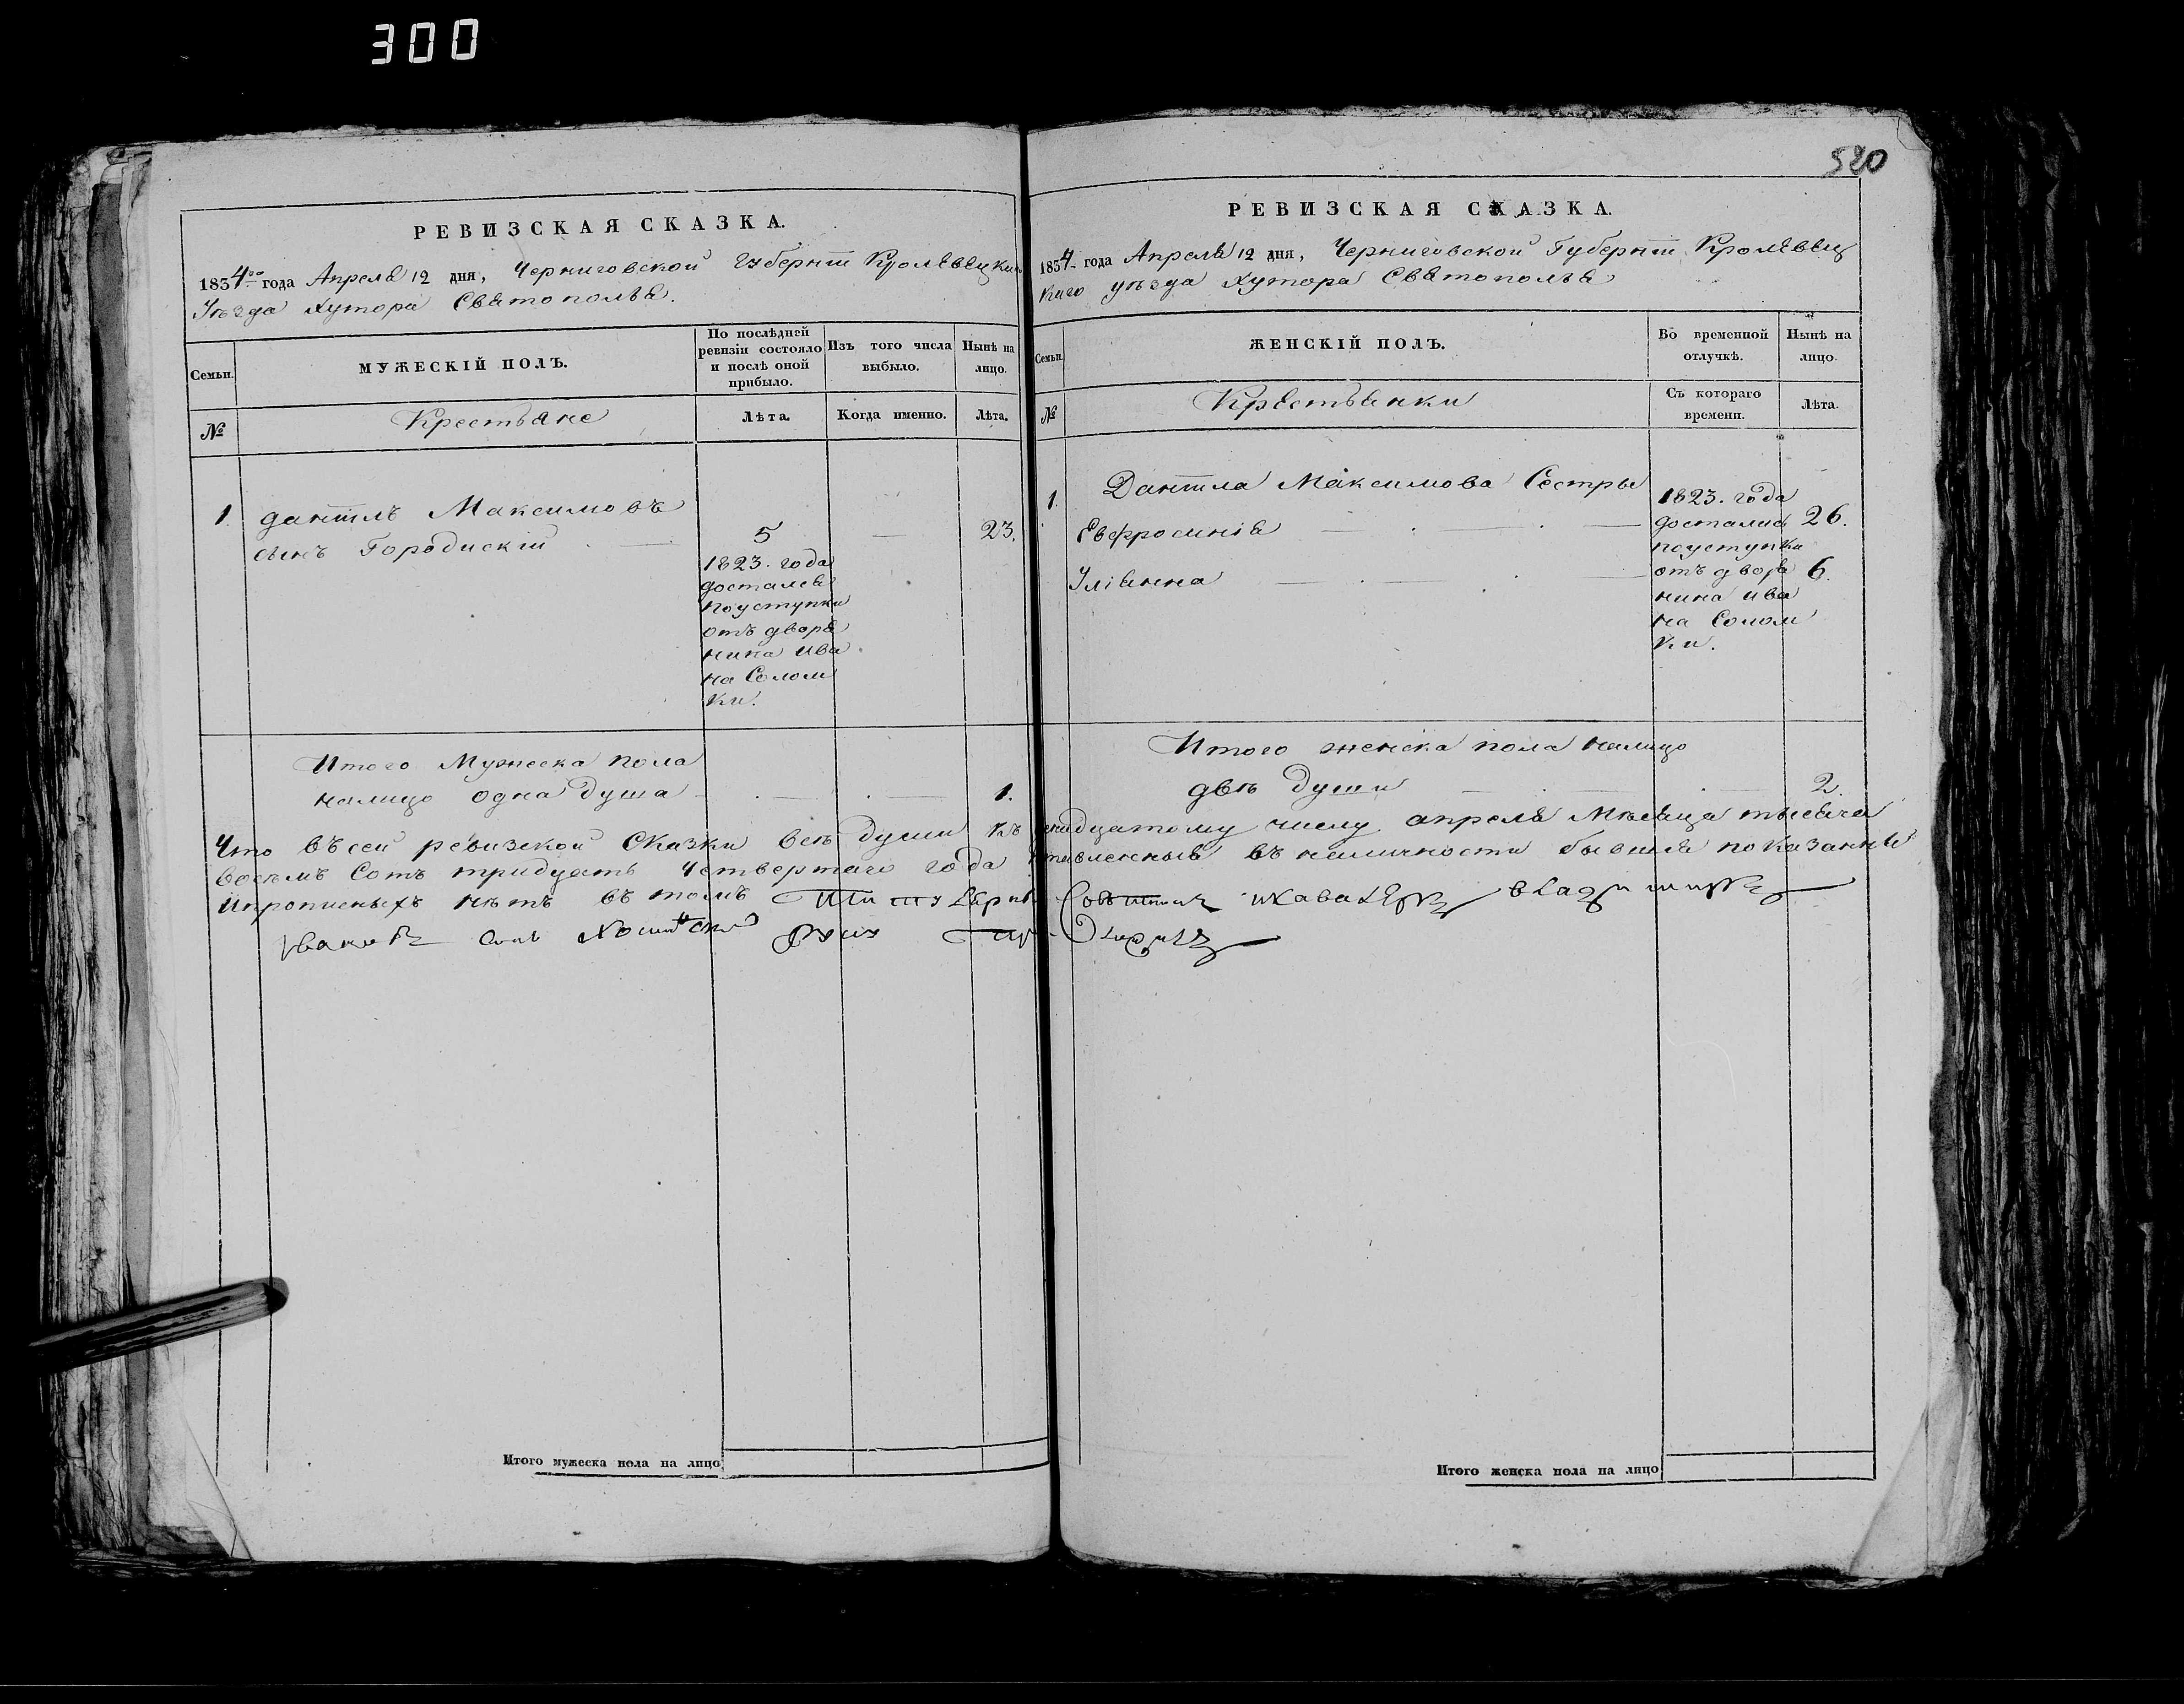 300
520
РЕВИЗСКАЯ СКАЗКА.
1834го года Апреля 12 дня, Черниговской Губерніи Кролевецкаго
Уѣзда Хутора Святополья.
Семьи.
МУЖЕСКІЙ ПОЛЪ.
По послѣдней
ревизіи состояло
и послѣ оной
прибыло.
Изъ того числа
выбыло.
Нынѣ на
лицо.
№
Крестьяне
Лѣта.
Когда именно.
Лѣта.
1. даніилъ Максимовъ
сынъ Городискій
5
23.
1823. года
достался
поуступки
отъ дворя
нина ива
на Солом
ки.
Итого Мужеска пола
налицо одна душа 1.
РЕВИЗСКАЯ СКАЗКА.
1834 года Апреля 12 дня, Черниговской Губерніи Кролевец
каго уѣзда Хутора Святополья
Семьи.
ЖЕНСКІЙ ПОЛЪ.
Во временной
отлучкѣ.
Нынѣ на
лицо.
№
Крестьянки
Съ котораго
времени.
Лѣта.
1. Даніила Максимова Сестры
Евфросинія 26.
Уліянна 6.
1823. года
достались
поуступки
отъ дворя
нина ива
на Солом
ки.
Итого женска пола налицо
двѣ души 2.
Что въсей ревизской Сказки всѣ души къ числу апреля Мѣсяца тысяча
восемъ Сотъ тридцать Четвертаго года въ наличности бывшія показанны
ипрописныхъ нѣтъ въ томъ
Итого мужеска пола на лицо
Итого женска пола на лицо